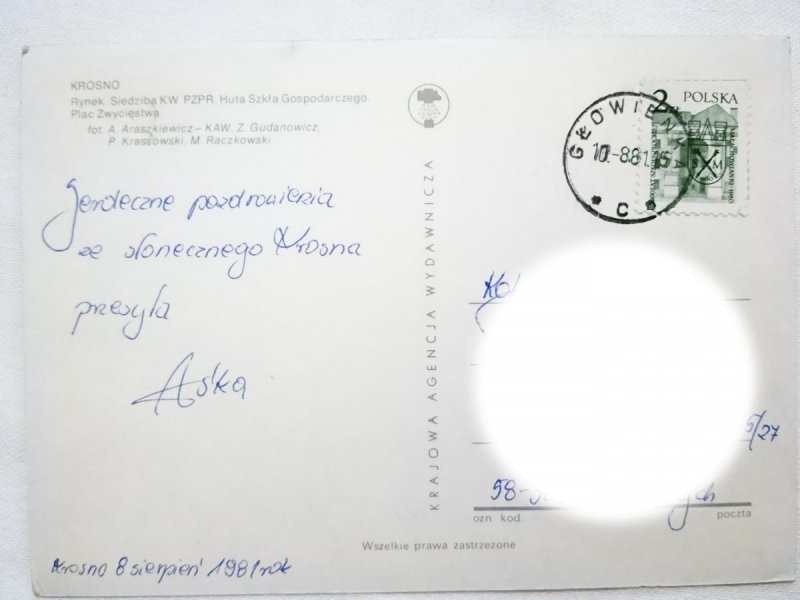 KROSNO
Rynek. Siedziba KW PZPR. Huta Szkła Gospodarczego.
Plac Zwycięstwa
fot. A. Araszkiewicz – KAW, Z. Gudanowicz,
P. Krassowski, M. Raczkowski
Serdeczne pozdrowienia
ze słonecznego Krosna
przesyła
Aśka
Krosno 8 sierpień 1981 rok
KRAJOWA AGENCJA WYDAWNICZA
2 zł POLSKA
GŁOWIEN
10.-8.81.15
* C *
5/27
58-
ozn kod poczta
Wszelkie prawa zastrzeżone